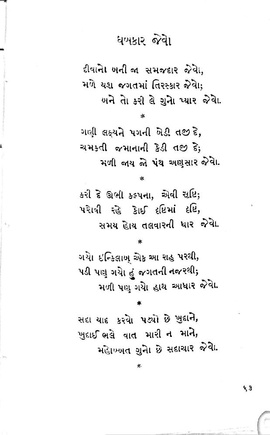 ધબકાર જેવો
દીવાનો બની જા સમજદાર જેવો,
મળે યશ જગતમાં તિરસ્કાર જેવો;
બને તો કરી લે ગુનો પ્યાર જેવો.
*
ગણી લક્ષ્યને પગની બેડી તજી દે,
ચમકતી જમાનાની કેડી તજી દે;
મળી જાય જો પંથ અણસાર જેવો.
*
કરી દે ઊભી કલ્પના, એવી સૃષ્ટિ;
પરોવી રહે કોઈ દૃષ્ટિમાં દૃષ્ટિ,
સમય હોય તલવારની ધાર જેવો.
*
ગયો ઈન્કિલાબ એક આ રાહ પરથી,
પડી પણ ગયો હું જગતની નજરથી;
મળી પણ ગયો હાથ આધાર જેવો.
*
સદા યાદ કરવો પડ્યો છે ખુદાને,
ખુદાઈ ભલે વાત મારી ન માને,
મહોબ્બત ગુનો છે સદાચાર જેવો.
*
૬૩